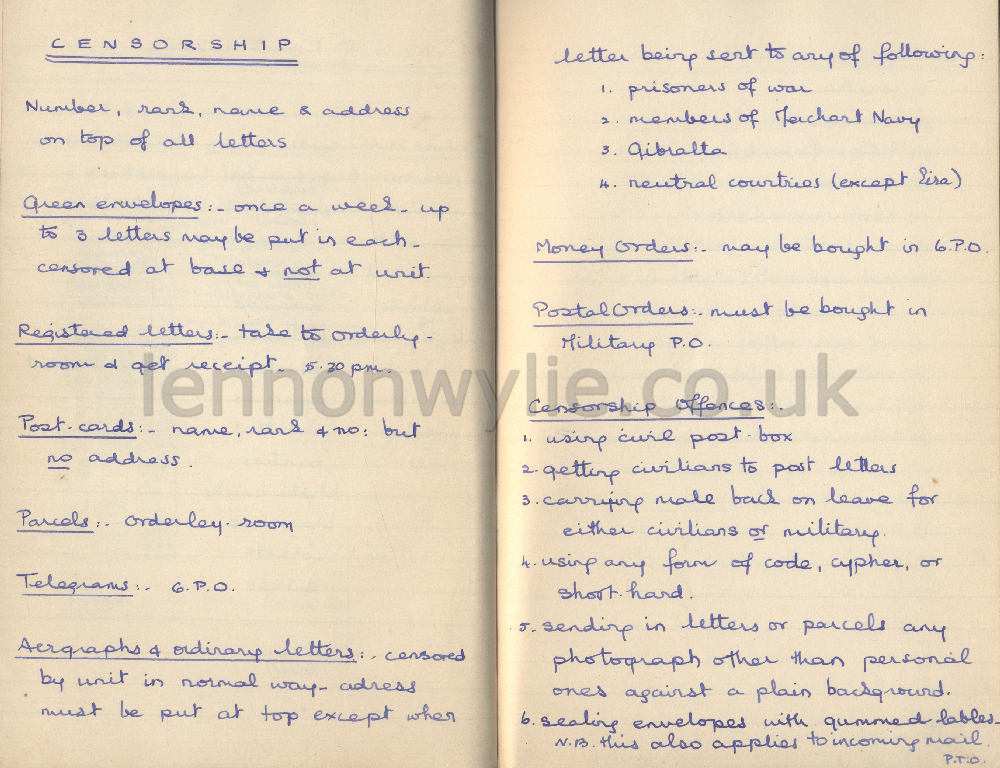 CENSORSHIP
Number, rank, name & address
on top of all letters
Green envelopes:- once a week - up
to 3 letters may be put in each -
censored at base & not at unit.
Registered letters:- take to orderly -
room & get receipt - 5.30 pm.
Post-cards:- name, rank & no: but
no address.
Parcels:- Orderley-room
Telegrams:- G.P.O.
Aergraphs & ordinary letters:- censored
by unit in normal way - adress
must be put at top except when
letter being sent to any of following:
1. prisoners of war
2. members of Merchant Navy
3. Gibralta
4. neutral countries (except Eire)
Money Orders:- may be bought in G.P.O.
Postal Orders:- must be bought in
Military P.O.
Censorship Offences:-
1. using civil post-box
2. getting civilians to post letters
3. carrying male back on leave for
either civilians or military.
4. using any form of code, cypher, or
short-hard.
5. sending in letters or parcels any
photograph other than personal
ones against a plain background.
6. sealing envelopes with gummed lables -
N.B. this also applies to incoming mail.
P.T.O.
lennonwylie.co.uk